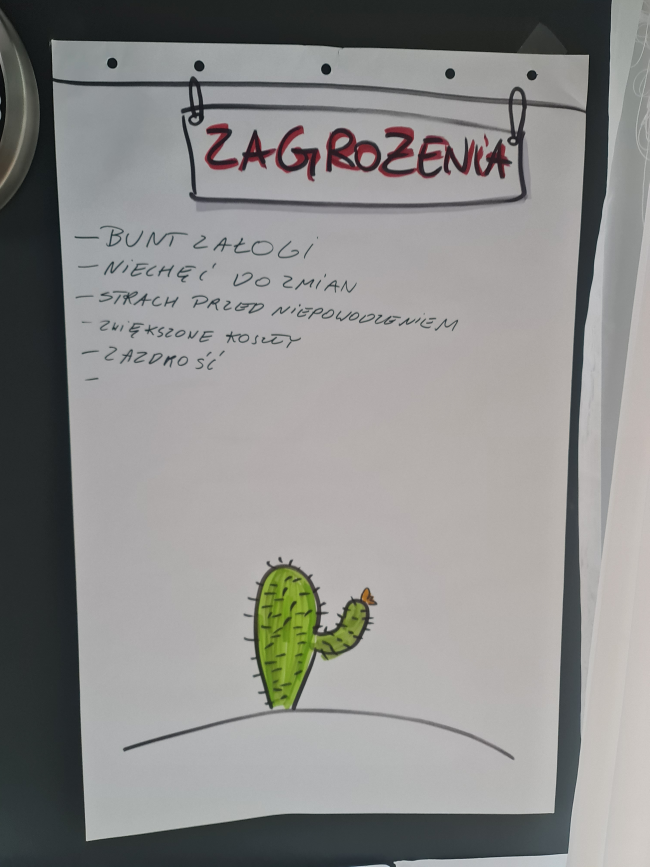 ZAGROŻENIA
- BUNT ZAŁOGI
- NIECHĘĆ DO ZMIAN
- STRACH PRZED NIEPOWODZENIEM
- ZWIĘKSZONE KOSZTY
- ZAZDROŚĆ
-